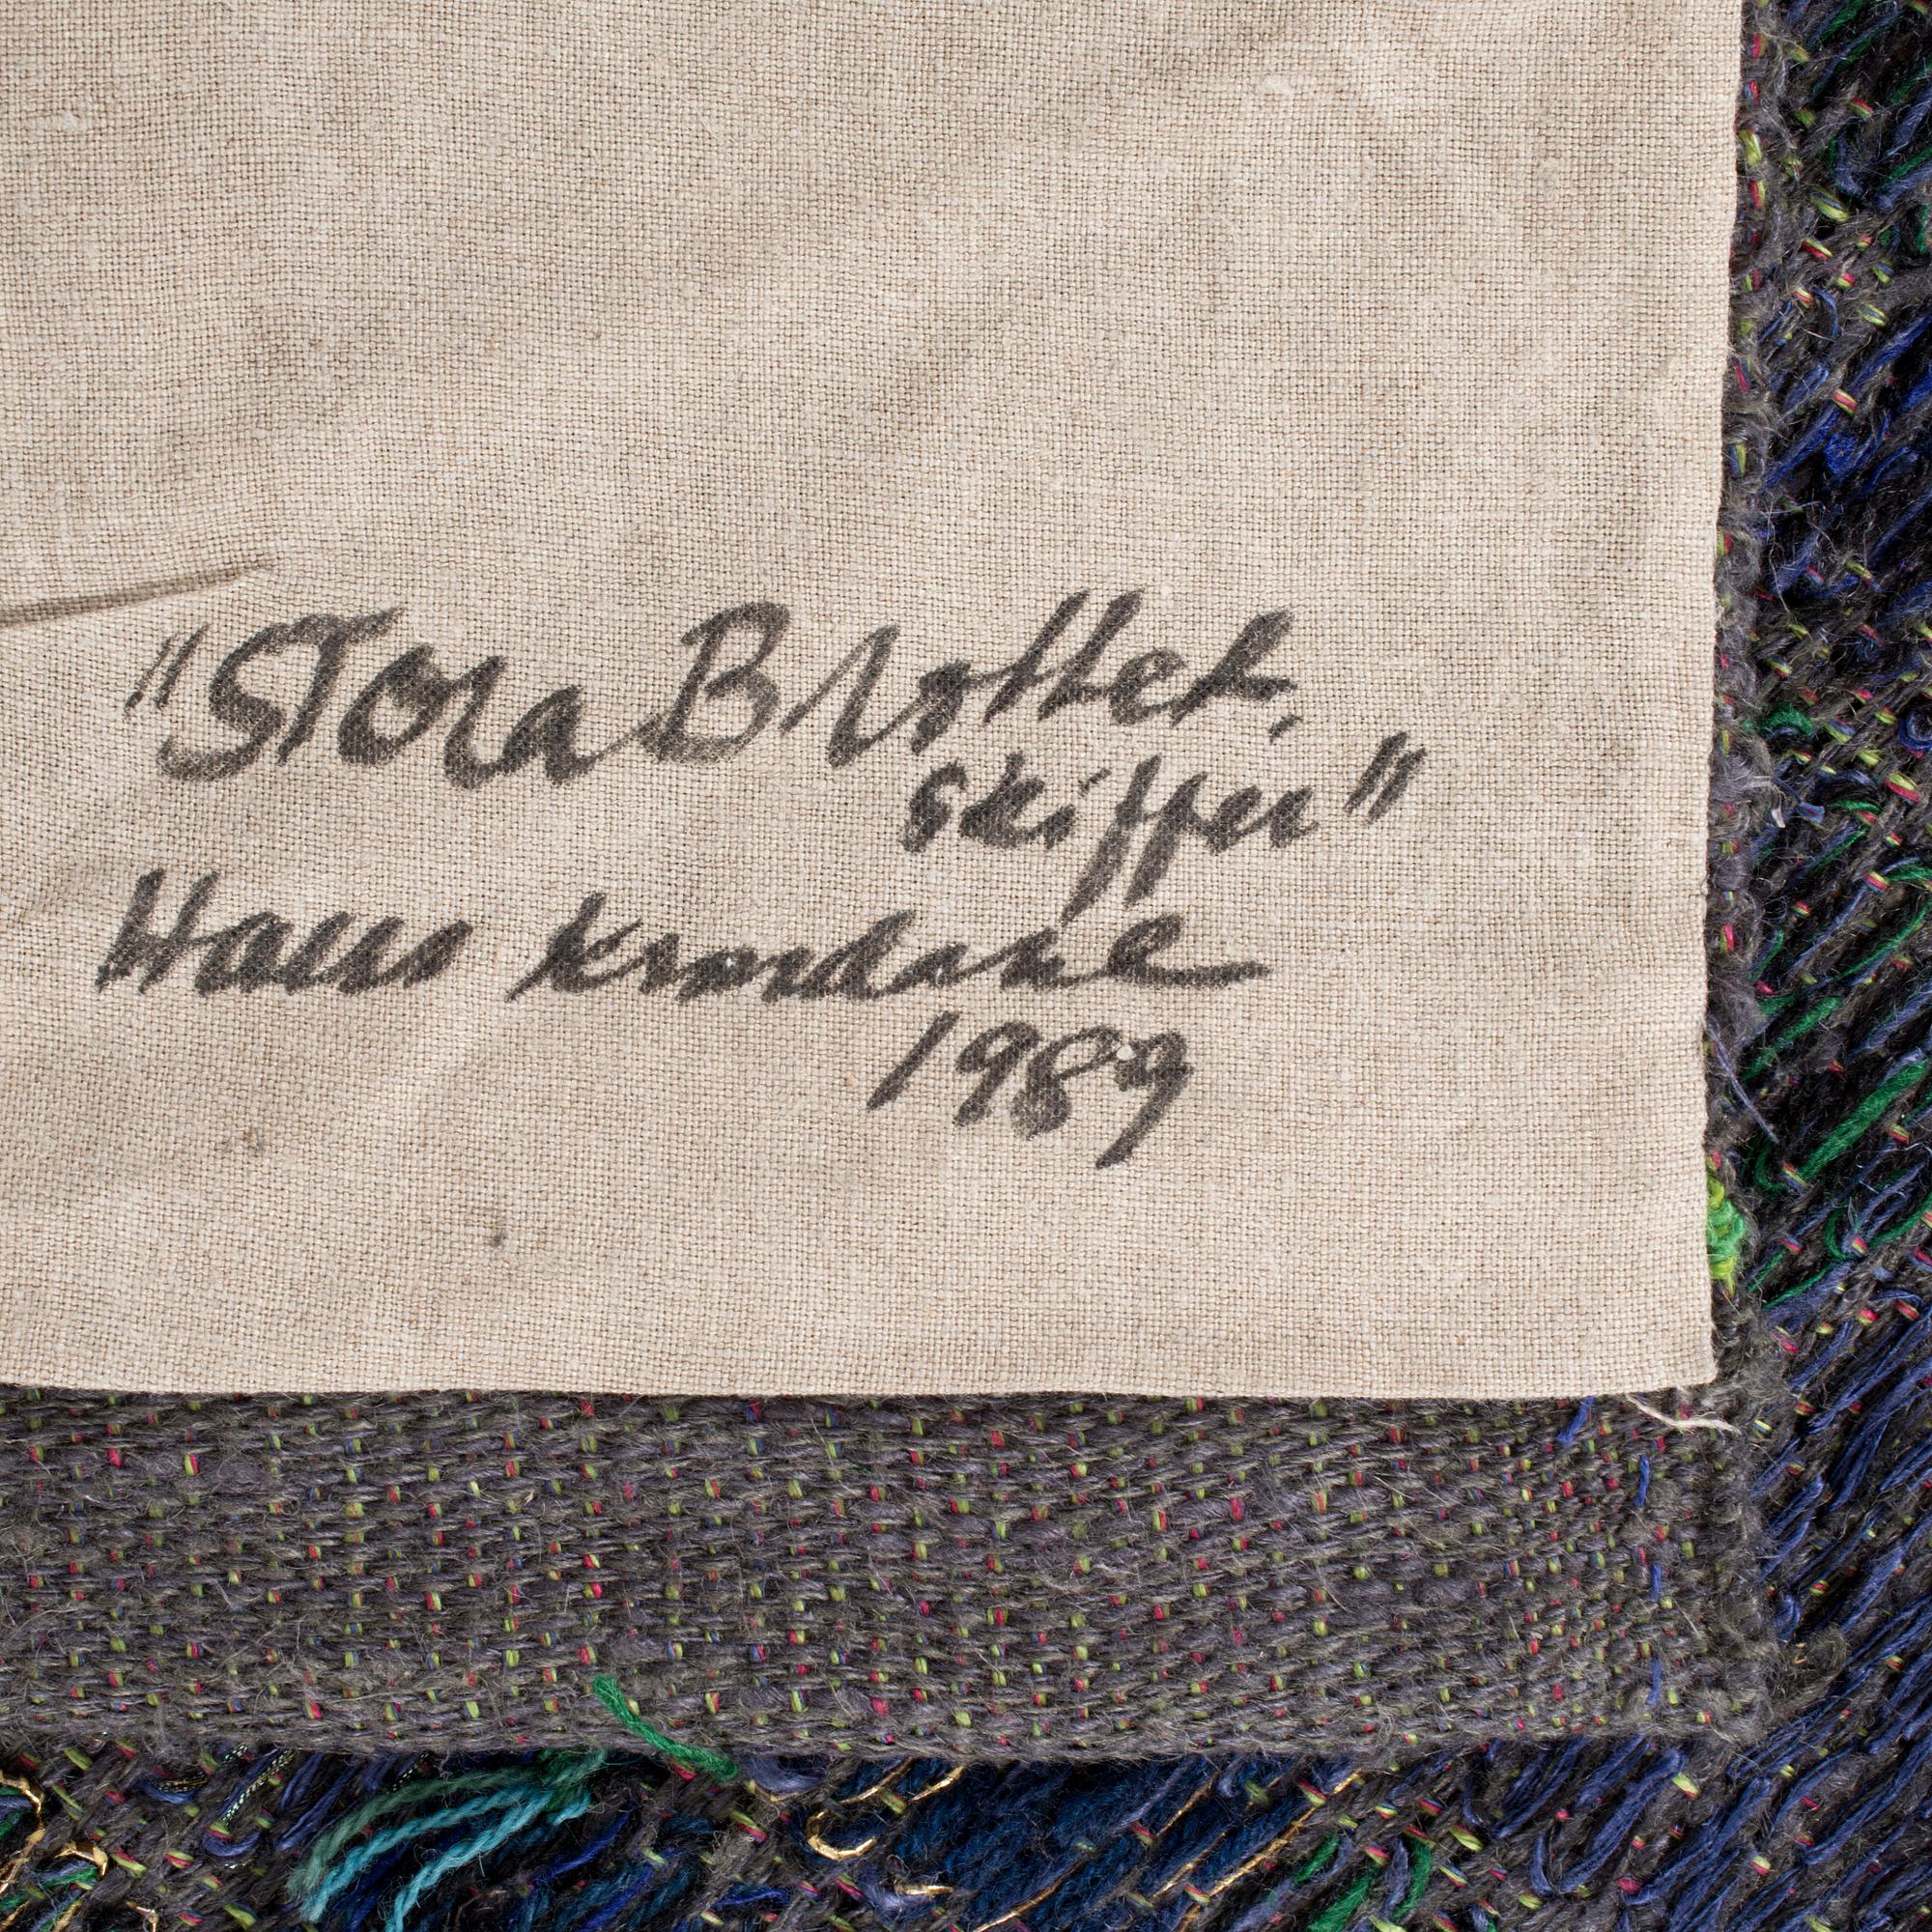 "Stora Brottet,
skiffer"
Hans Krondahl
1989